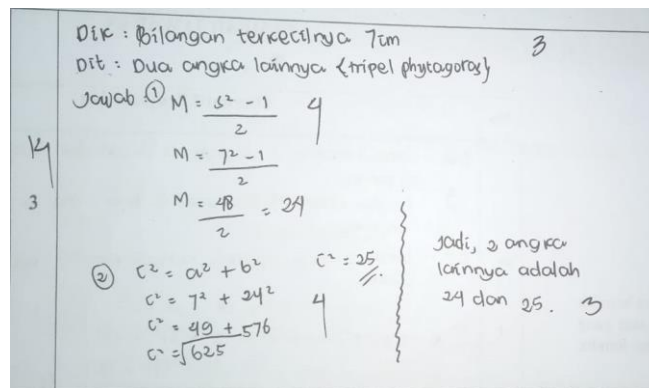 Dik : Bilangan terkecilnya 7cm 3
Dit : Dua angka lainnya {tripel phytagoras}
Jawab : ① M = s² - 1 / 2 4
M = 7² - 1 / 2
M = 48 / 2 = 24
14
3
② c² = a² + b²
c² = 7² + 24²
c² = 49 + 576
c² = √625
c² = 25
4
Jadi, 2 angka
lainnya adalah
24 dan 25. 3